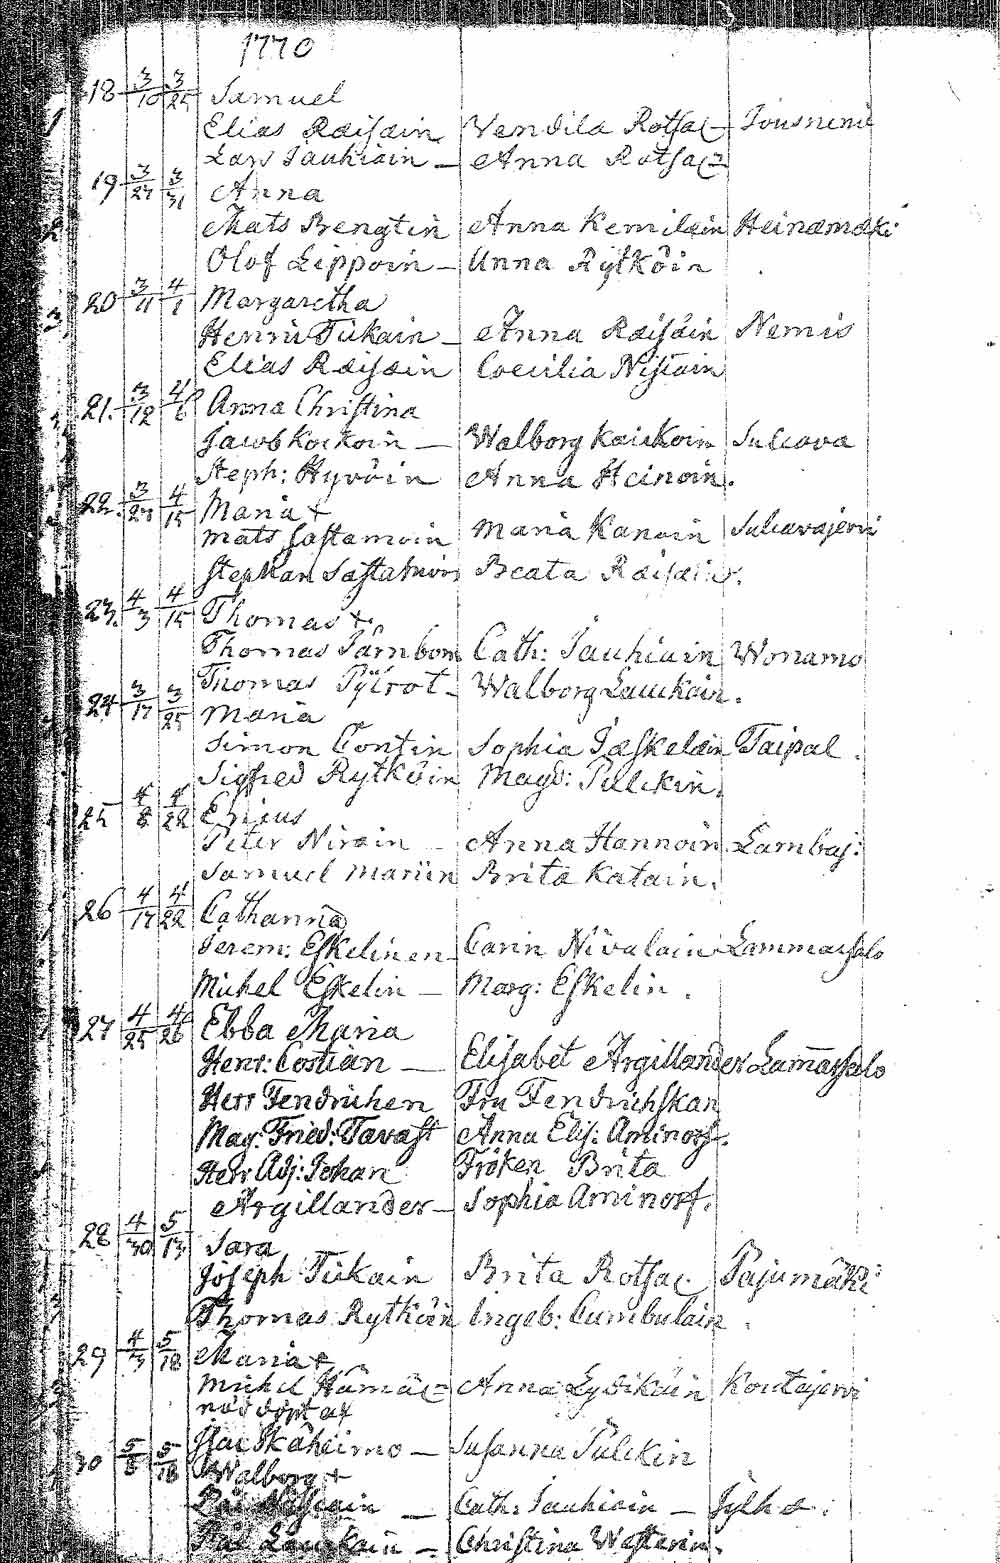 1770
18 3/10 3/25 Samuel
Elias Räisäin Vendila Rotsac- Jousniemi
Lars Jauhiain - Anna Rotsac-
19 3/27 3/31 Anna
Mats Bengtin Anna Kemiläin Heinämäki
Olof Lippoin - Anna Rytköin
20 3/11 4/1 Margaretha
Henric Tiikain - Anna Räisäin Nemis
Elias Räisäin Coecilia Nisiain
21. 3/12 4/6 Anna Christina
Jacob Koikoin - Walborg Kaikoin Sulcava
Steph: Hyvöin Anna Heinoin.
22. 3/27 4/15 Maria +
Mats Sastamoin Maria Kanain Sulcavajervi
Stephan Sastamoin Beata Räisäin.
23. 4/3 4/15 Thomas +
Thomas Järnbom Cath: Jauhiain Wonamo
Thomas Pylrot - Walborg Laukain.
24 3/17 3/25 Maria
Simon Contin Sophia Jäskeläin Taipal.
Sigfred Rytköin Magd: Pulckin.
25 4/8 4/22 Ericus
Peter Nirain - Anna Hannoin Lambaj:
Samuel Mariin Brita Katain.
26 4/17 4/22 Catharina
Jerem: Eskelinen Carin Nivalain Lammassalo
Michel Eskelin - Marg: Eskelin.
27 4/25 4/26 Ebba Maria
Henr: Costian - Elisabet Argillander Lamassalo
Herr Fendrichen Fru Fendrichskan
Mag: Fried: Tavast Anna Elis: Aminoff.
Herr Adj: Johan Fröken Brita
Argillander - Sophia Aminoff.
28 4/30 5/13 Sara
Joseph Tiikain Brita Rotsac. Pajumäki
Thomas Rytköin Ingeb: Cumbulain.
29 4/ 5/18 Maria +
Michel Hämäl= Anna Lydikäin Koutajervi
nöddöpt af
Isac Kåheimo - Susanna Pulckin
30 5/8 5/18 Walborg +
Nissiain - Cath: Jauhiain - Sylkä.
Pål Laukain - Christina Westerin.